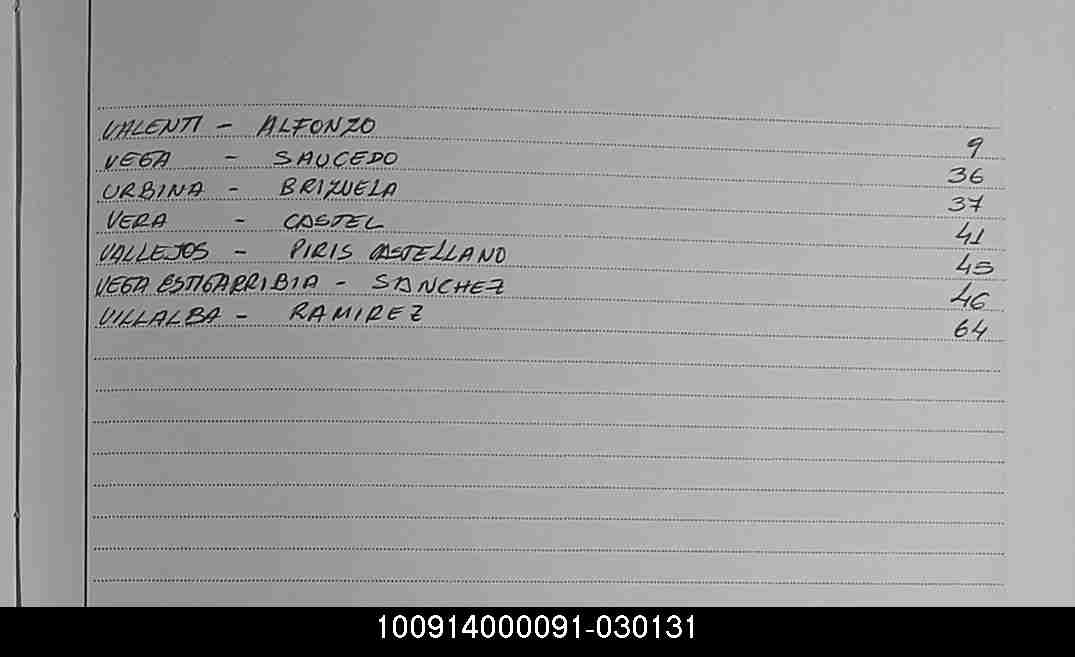 VALENTI - ALFONZO 9
VEGA - SAUCEDO 36
URBINA - BRIZUELA 37
VERA - CASTEL 41
VALLEJOS - PIRIS CASTELLANO 45
VEGA ESTIGARRIBIA - SANCHEZ 46
VILLALBA - RAMIREZ 64
100914000091-030131